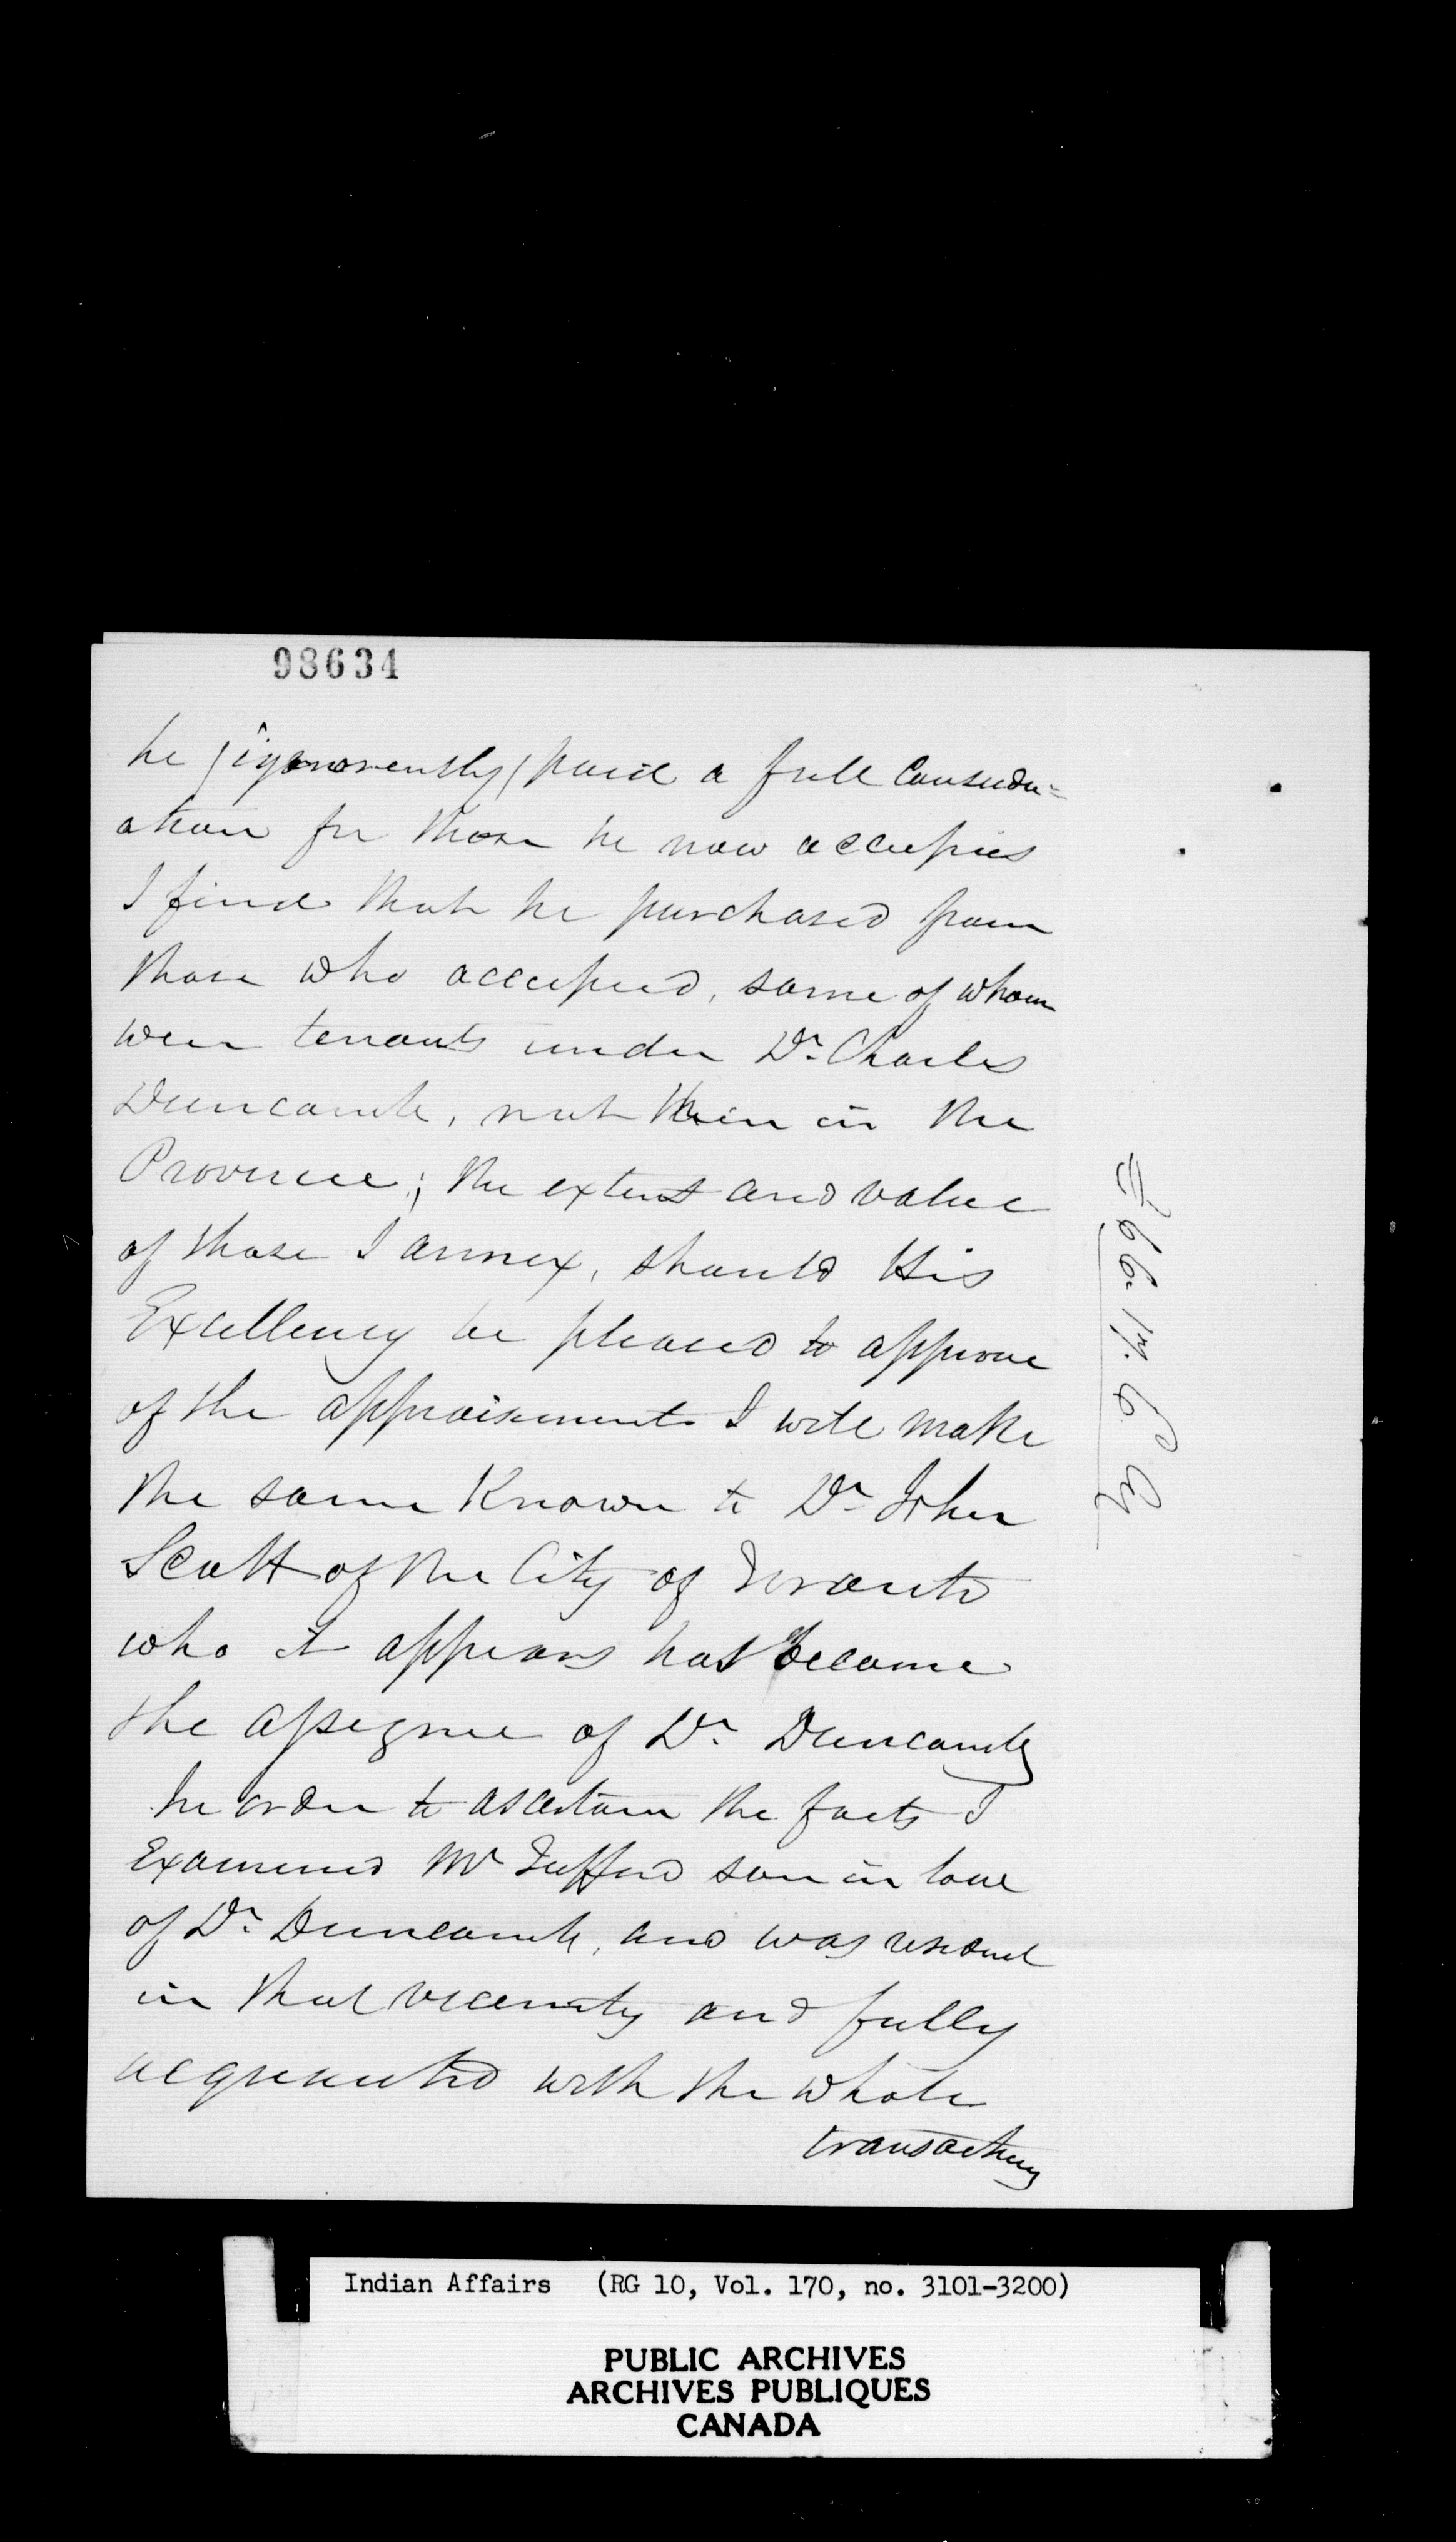 98634
he (ignorantly) paid a full consider=
ation for those he now occupies
I find that he purchased from
those who occupied, some of whom
were tenants under Dr. Charles
Duncombe, not then in the
Province; the extent and value
of those I annex, should His
Excellency be pleased to approve
of the appraisement I will make
the same Known to Dr. John
Scott of the City of Toronto
who it appears has become
the assignee of Dr. Duncombe
In order to ascertain the facts I
Examined Mr Tufford son in law
of Dr. Duncombe, and was resident
in that vicinity and fully
acquainted with the whole
transaction
£66. 17. 6 Cy
Indian Affairs (RG 10, Vol. 170, no. 3101-3200)
PUBLIC ARCHIVES
ARCHIVES PUBLIQUES
CANADA